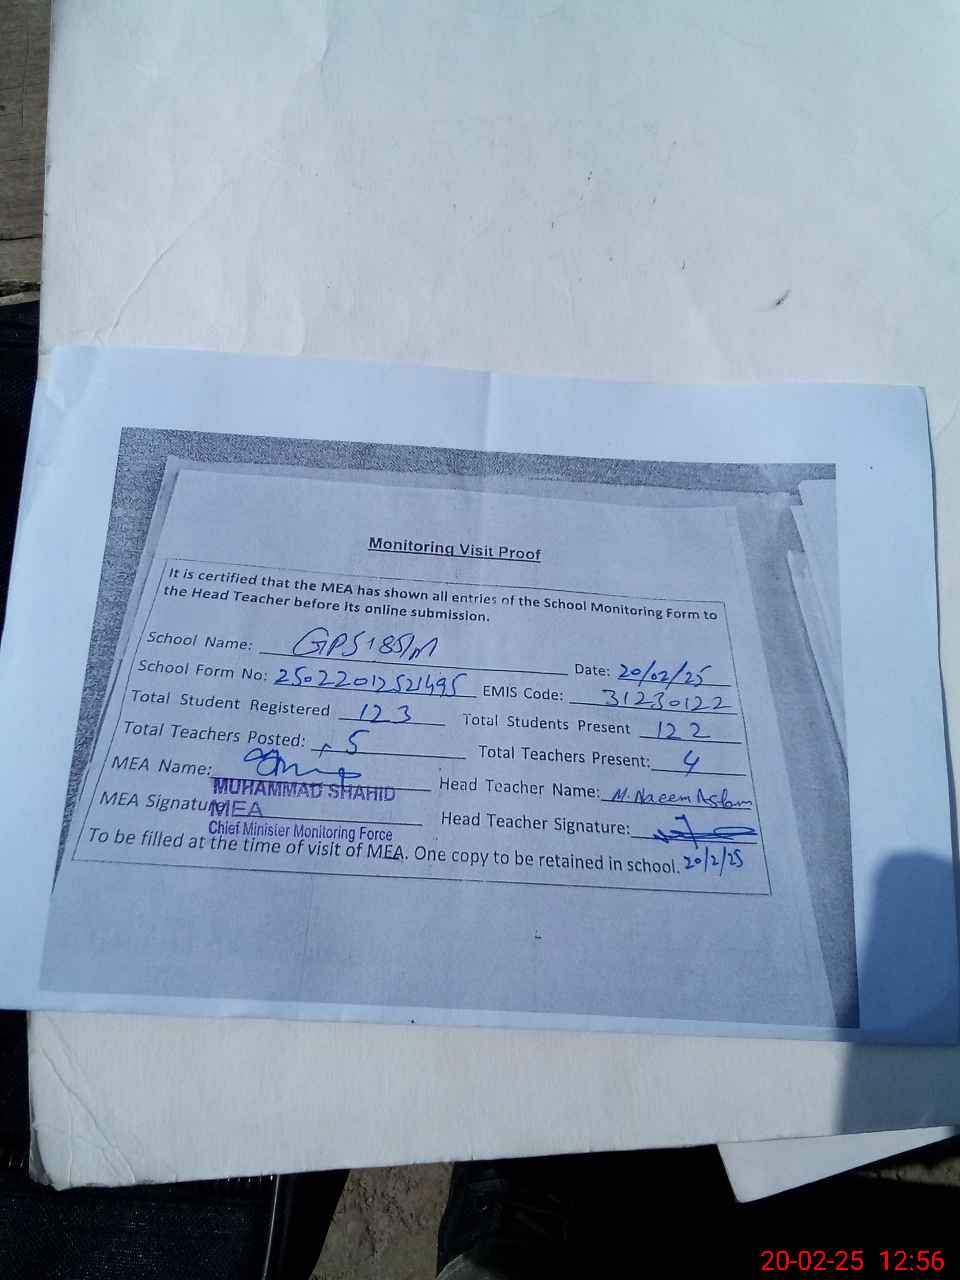 Monitoring Visit Proof
It is certified that the MEA has shown all entries of the School Monitoring Form to
the Head Teacher before its online submission.
School Name: GPS 185/M Date: 20/02/25
School Form No: 25022012521495 EMIS Code: 31230122
Total Student Registered 123 Total Students Present 122
Total Teachers Posted: 5 Total Teachers Present: 4
MEA Name: Head Teacher Name: M. Naeem Aslam
MUHAMMAD SHAHID
MEA Signature: Head Teacher Signature:
MEA
Chief Minister Monitoring Force
To be filled at the time of visit of MEA. One copy to be retained in school. 20/2/25
20-02-25 12:56